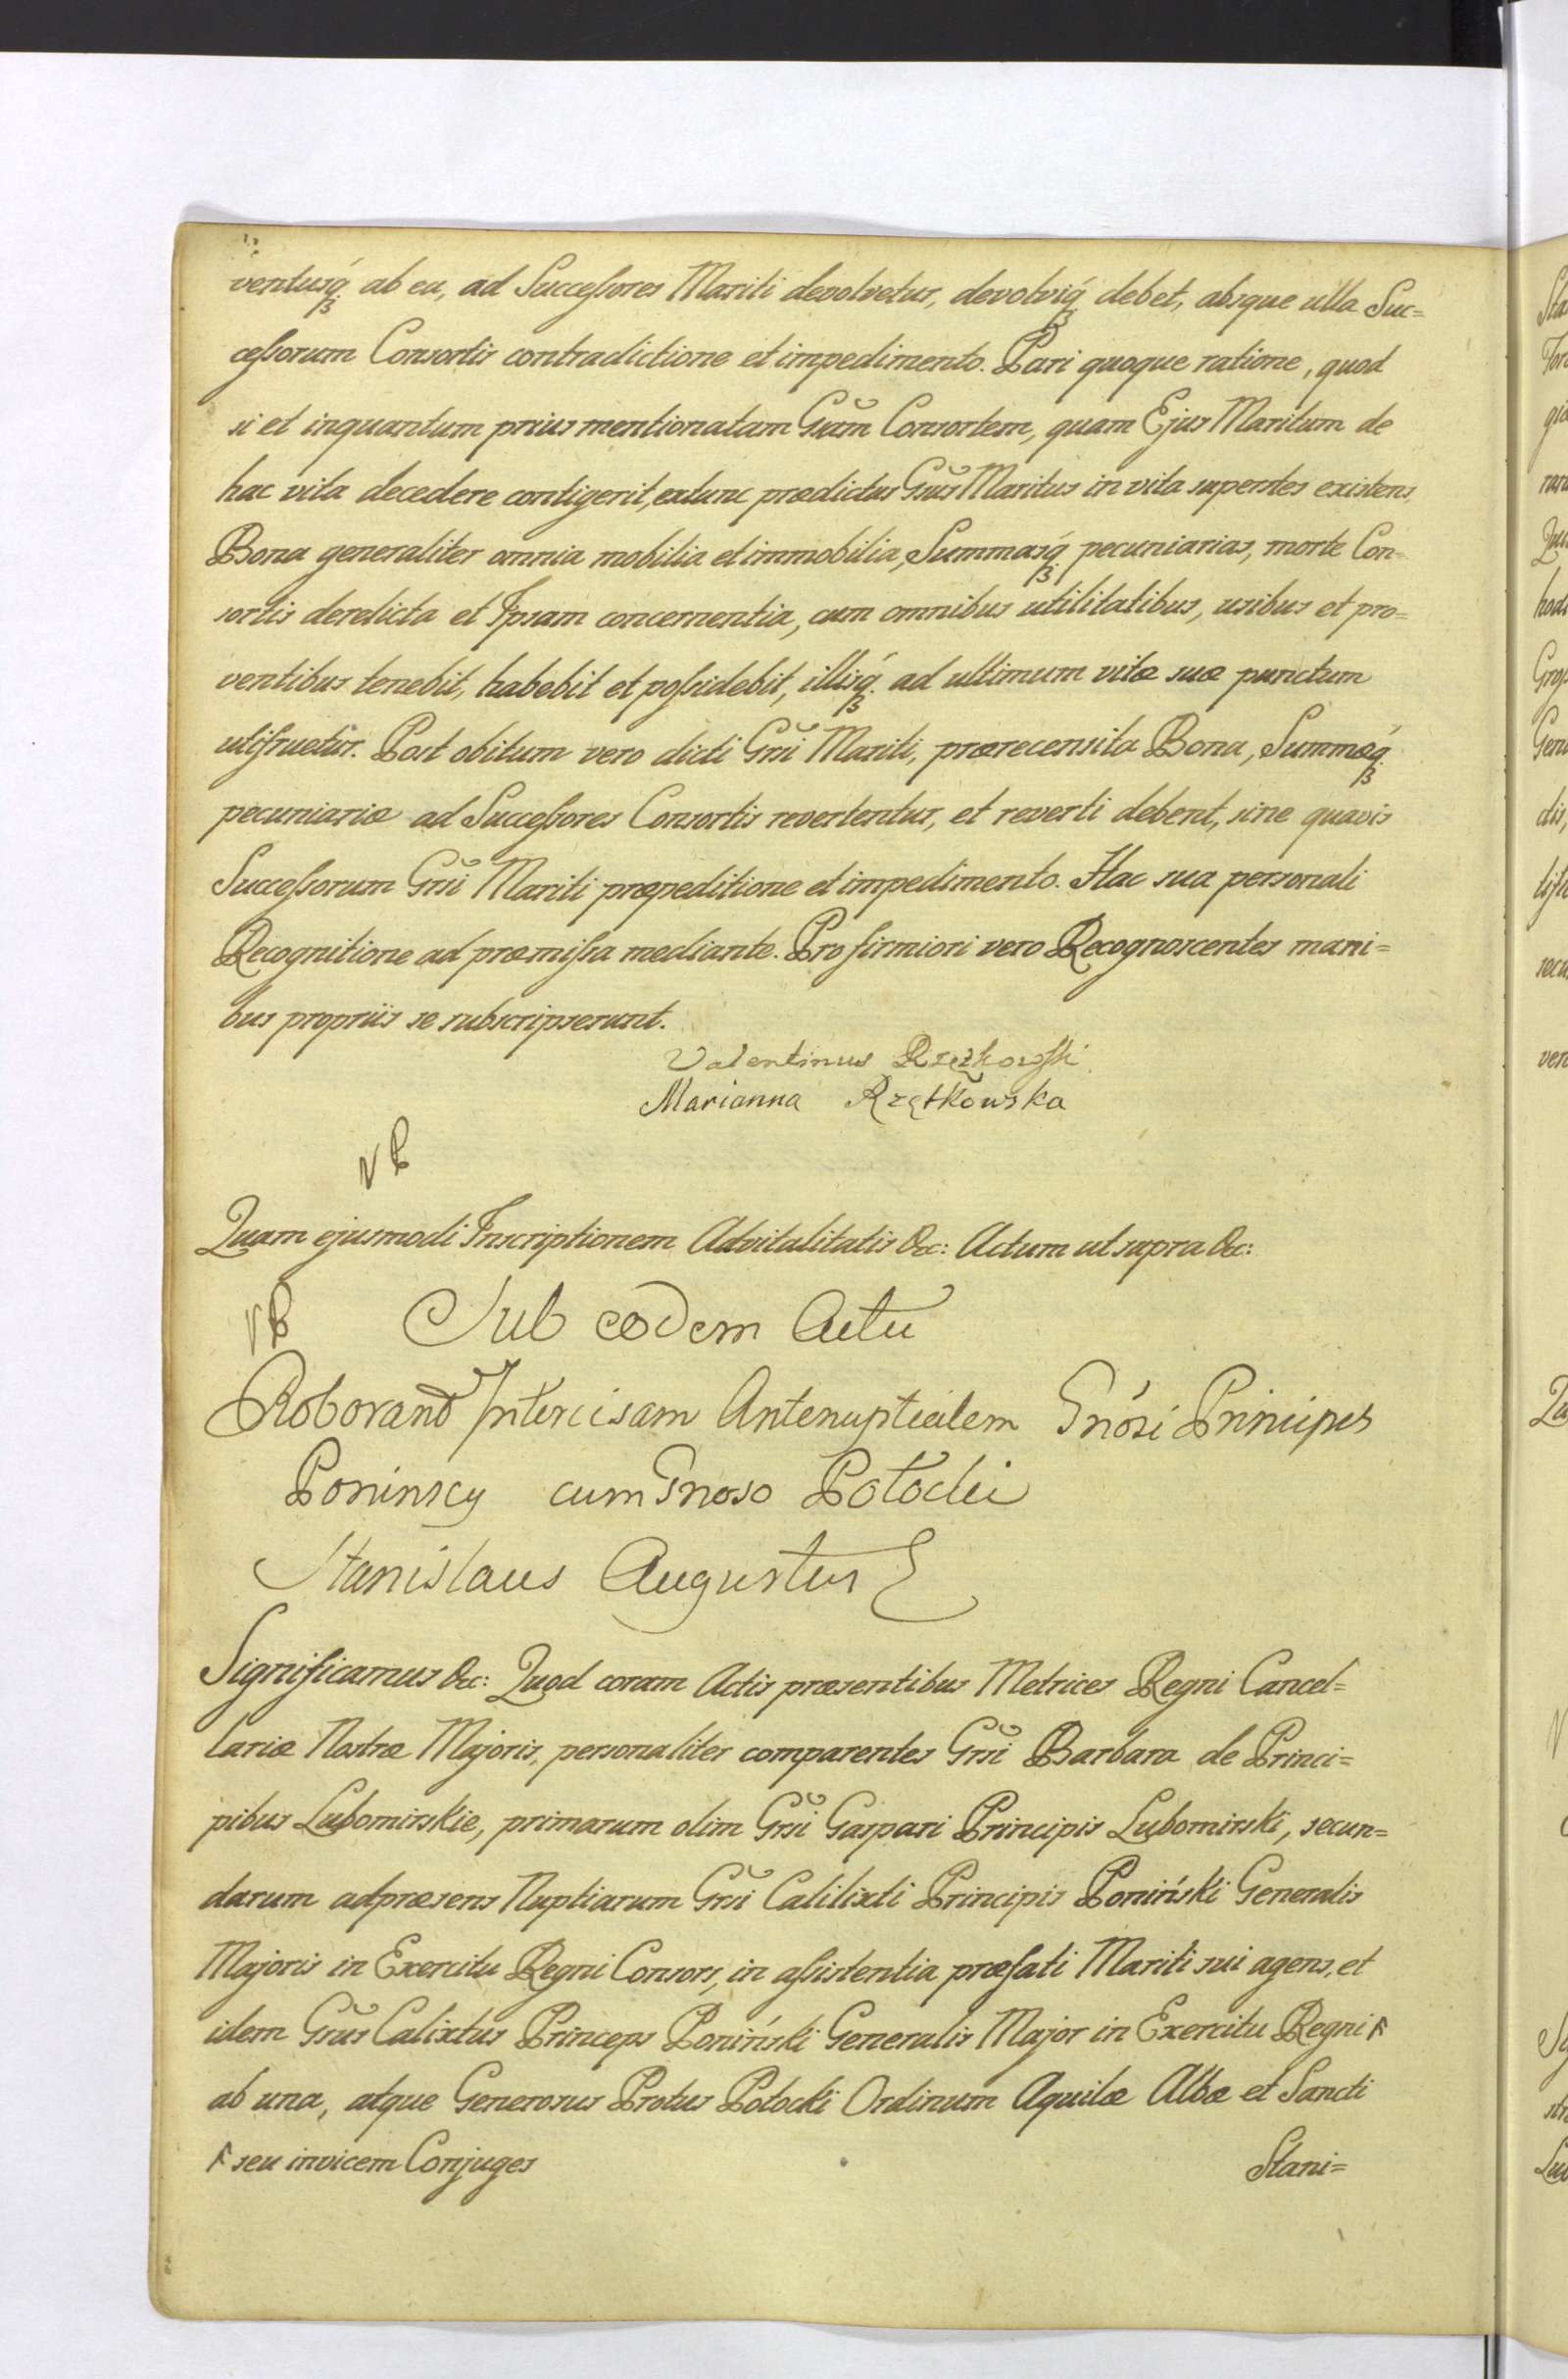 ventusq́ʒ ab ea, ad Succeſsores Mariti devolvetur, devolviq́ʒ debet, absque ulla Suc=
ceſsorum Consortis contradictione et impedimento. Pari quoque ratione, quod
si et inquantum prius mentionatam Gsam Consortem, quam Ejus Maritum de
hac vita decedere contigerit, extunc prædictus Gsus Maritus in vita superstes existens,
Bona generaliter omnia mobilia et immobilia, Summasq́ʒ pecuniarias, morte Con=
sortis derelicta et Ipsam concernentia, cum omnibus utilitatibus, usibus et pro=
ventibus tenebit, habebit et poſsidebit, illisq́ʒ ad ultimum vitæ suæ punctum
utifruetur. Post obitum vero dicti Grsi Mariti, prærecensita Bona, Summæq́ʒ
pecuniariæ ad Succeſsores Consortis revertentur, et reverti debent, sine quavis
Succeſsorum Grsi Mariti præpeditione et impedimento. Hac sua personali
Recognitione ad præmiſsa mediante. Pro firmiori vero Recognoscentes mani=
bus propriis se subscripserunt.
Valentinus Rzętkowſki
Marianna Rzętkowska
NB
Quam ejusmodi Inscriptionem Advitalitatis &c: Actum ut supra &c:
NB Sub eodem Actu
Roborand Intercisam Antenuptialem Gnósi Principes
Poninscy cum Gnoso Potocki
Stanislaus Augustus
Significamus &c: Quod coram Actis præsentibus Metrices Regni Cancel=
lariæ Nostræ Majoris, personaliter comparentes Grsi Barbara de Princi=
pibus Lubomirskie, primarum olim Grsi Gaspari Principis Lubomirski, secun=
darum adpræsens Nuptiarum Grsi Calilixti Principis Poniński Generalis
Majoris in Exercitu Regni Consors, in aſsistentia præfati Mariti sui agens, et
idem Gsus Calixtus Princeps Poniński Generalis Major in Exercitu Regni ꟻ
ab una, atque Generosus Protus Potocki Ordinum Aquilæ Albæ et Sancti
ꟻ seu invicem Conjuges
Stani=